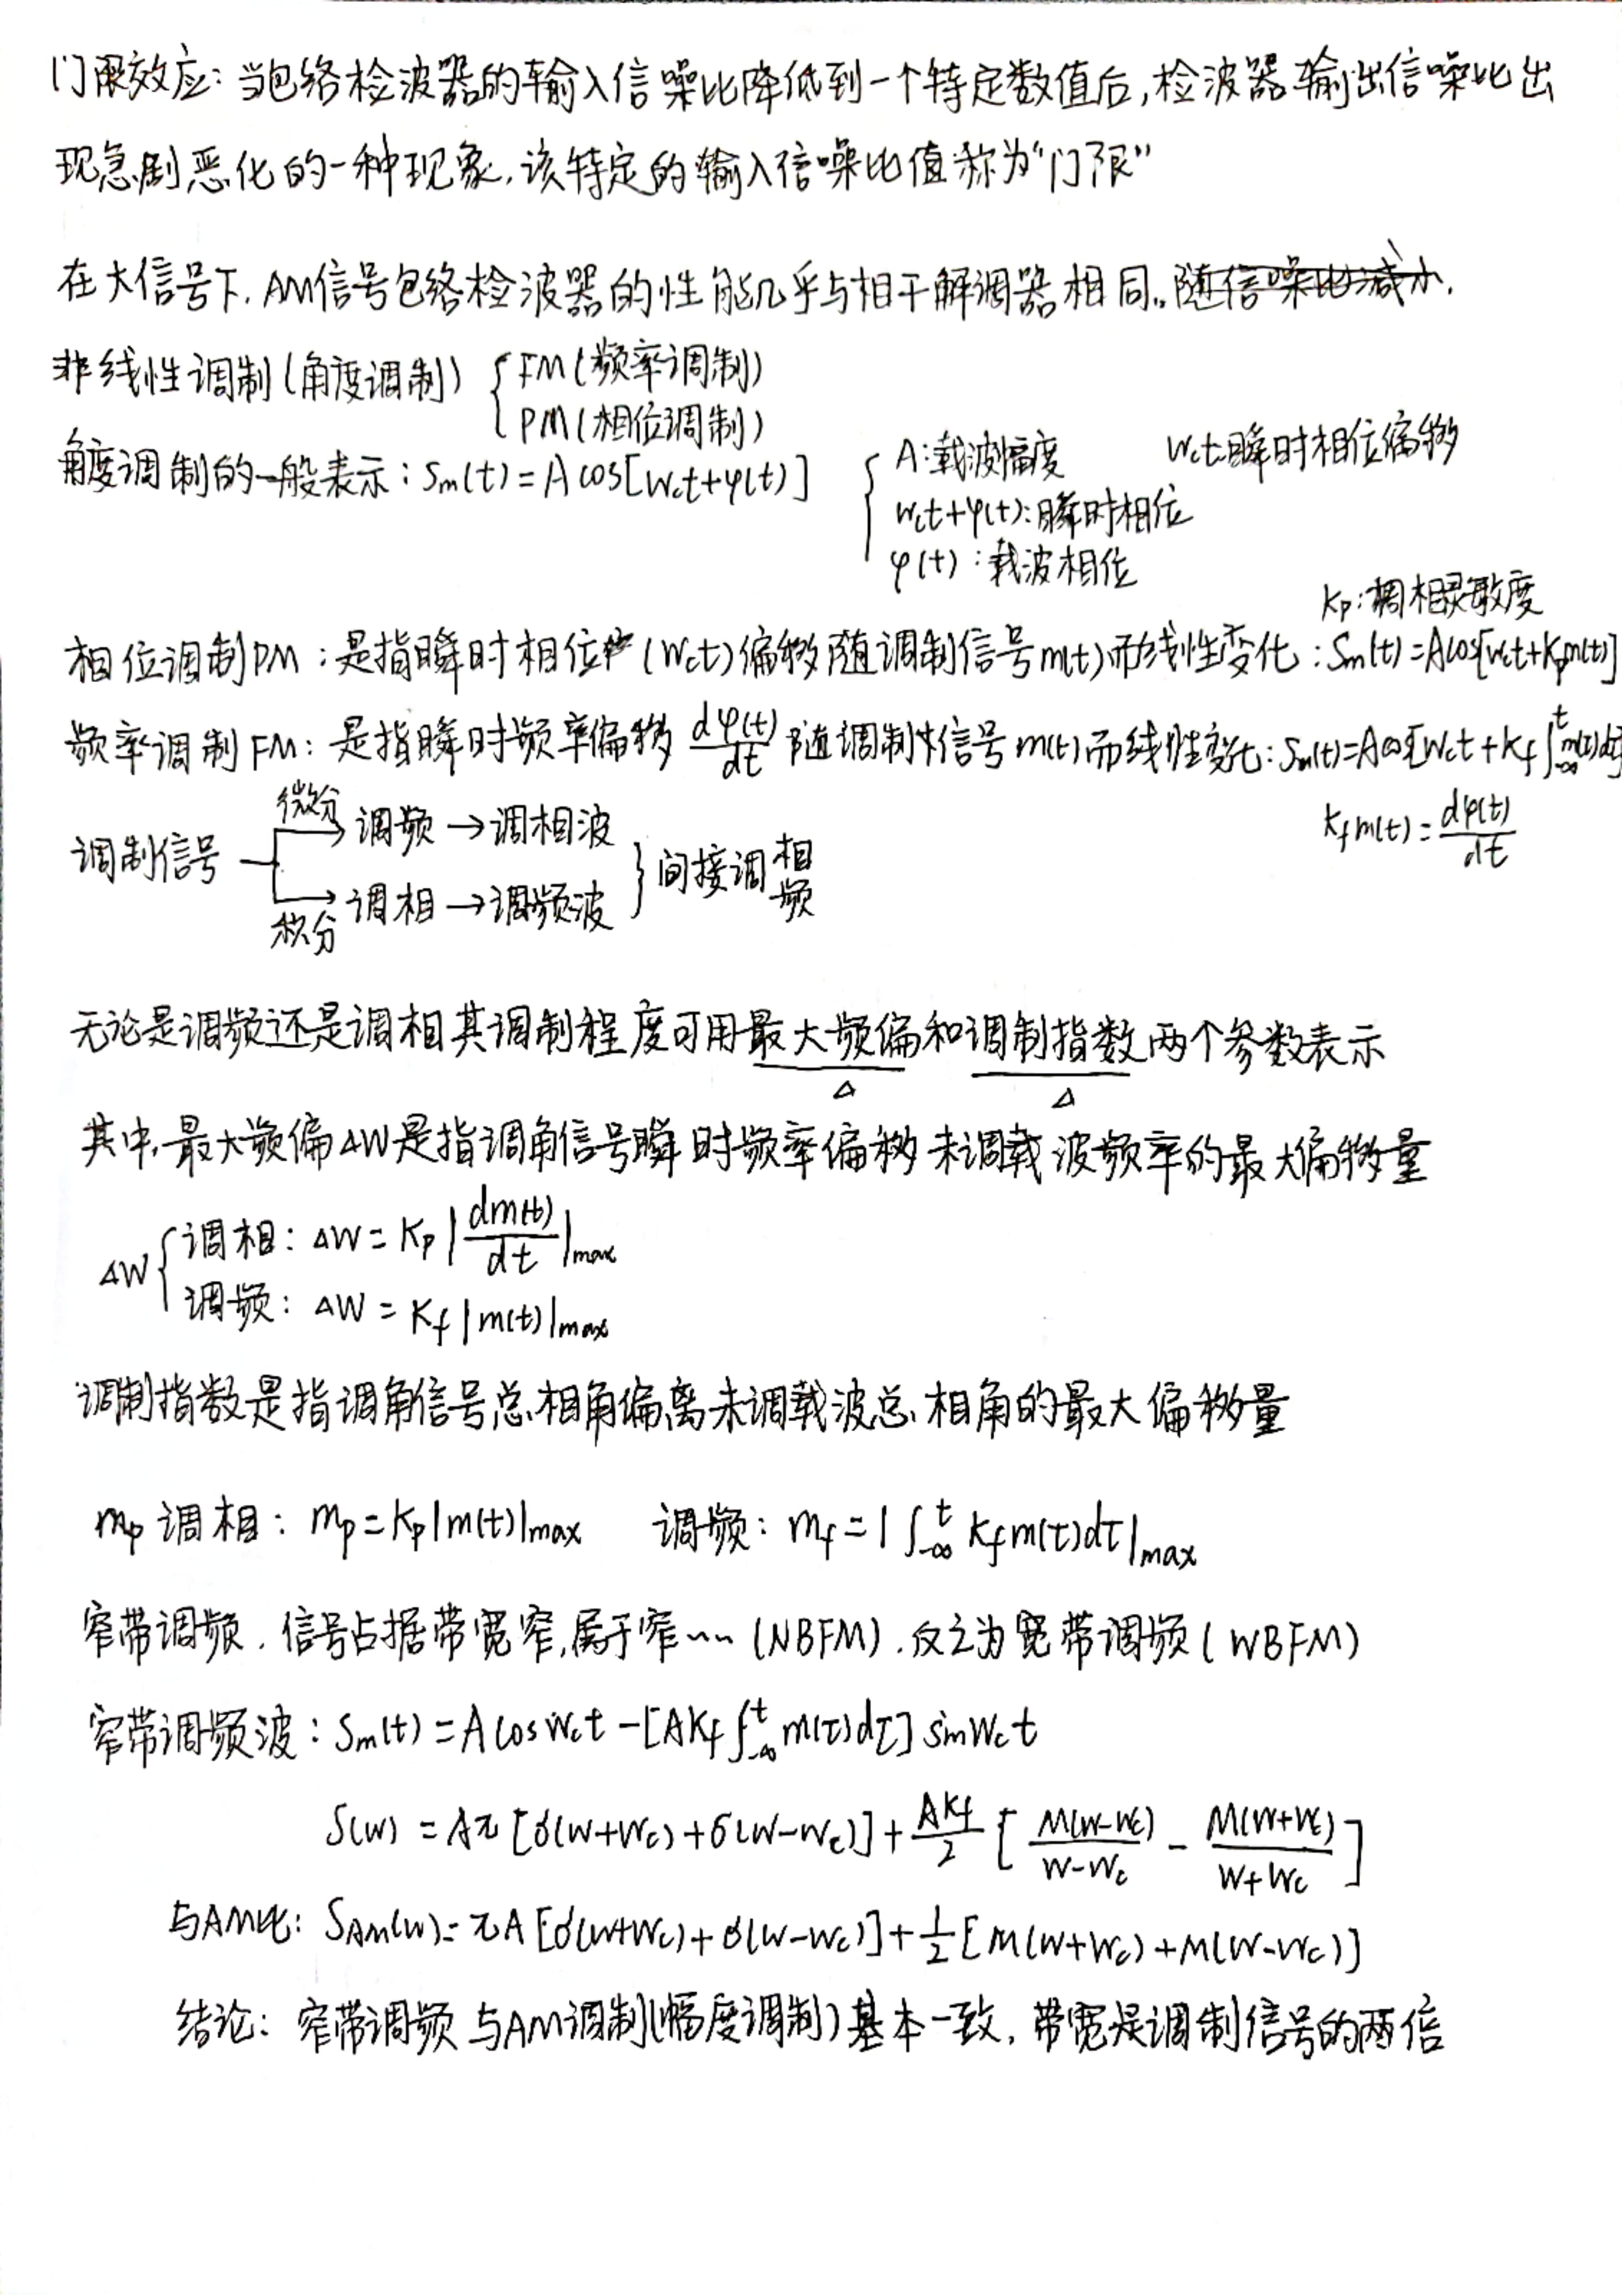 门限效应：当包络检波器的输入信噪比降低到一个特定数值后，检波器输出信噪比出
现急剧恶化的一种现象，该特定的输入信噪比值称为“门限”
在大信号下，AM信号包络检波器的性能几乎与相干解调器相同。随信噪比减小，
非线性调制（角度调制） { FM（频率调制）
PM（相位调制）
角度调制的一般表示：Sm(t)=Acos[Wct+φ(t)]
{ A：载波幅度 Wct：瞬时相位偏移
Wct+φ(t)：瞬时相位
φ(t)：载波相位
Kp：调相灵敏度
相位调制PM：是指瞬时相位(Wct)偏移随调制信号m(t)而线性变化：Sm(t)=Acos[Wct+Kpm(t)]
频率调制FM：是指瞬时频率偏移 dφ(t)/dt 随调制信号m(t)而线性变化：Sm(t)=Acos[Wct+Kf∫_{-∞}^{t}m(τ)dτ]
Kfm(t)=dφ(t)/dt
调制信号
微分 → 调频 → 调相波
积分 → 调相 → 调频波
} 间接调相
频
无论是调频还是调相其调制程度可用最大频偏和调制指数两个参数表示
△ △
其中，最大频偏△W是指调角信号瞬时频率偏移未调载波频率的最大偏移量
△W { 调相：△W=Kp|dm(t)/dt|max
调频：△W=Kf|m(t)|max
调制指数是指调角信号总相角偏离未调载波总相角的最大偏移量
mp 调相：mp=Kp|m(t)|max 调频：mf=|∫_{-∞}^{t}Kfm(τ)dτ|max
窄带调频，信号占据带宽窄，属于窄~~（NBFM），反之为宽带调频（WBFM）
窄带调频波：Sm(t)=AcosWct-[AKf∫_{-∞}^{t}m(τ)dτ]sinWct
S(w)=Aπ[δ(w+wc)+δ(w-wc)]+AKf/2[M(w-wc)/(w-wc)-M(w+wc)/(w+wc)]
与AM比：SAM(w)=πA[δ(w+wc)+δ(w-wc)]+1/2[M(w+wc)+M(w-wc)]
结论：窄带调频与AM调制（幅度调制）基本一致，带宽是调制信号的两倍